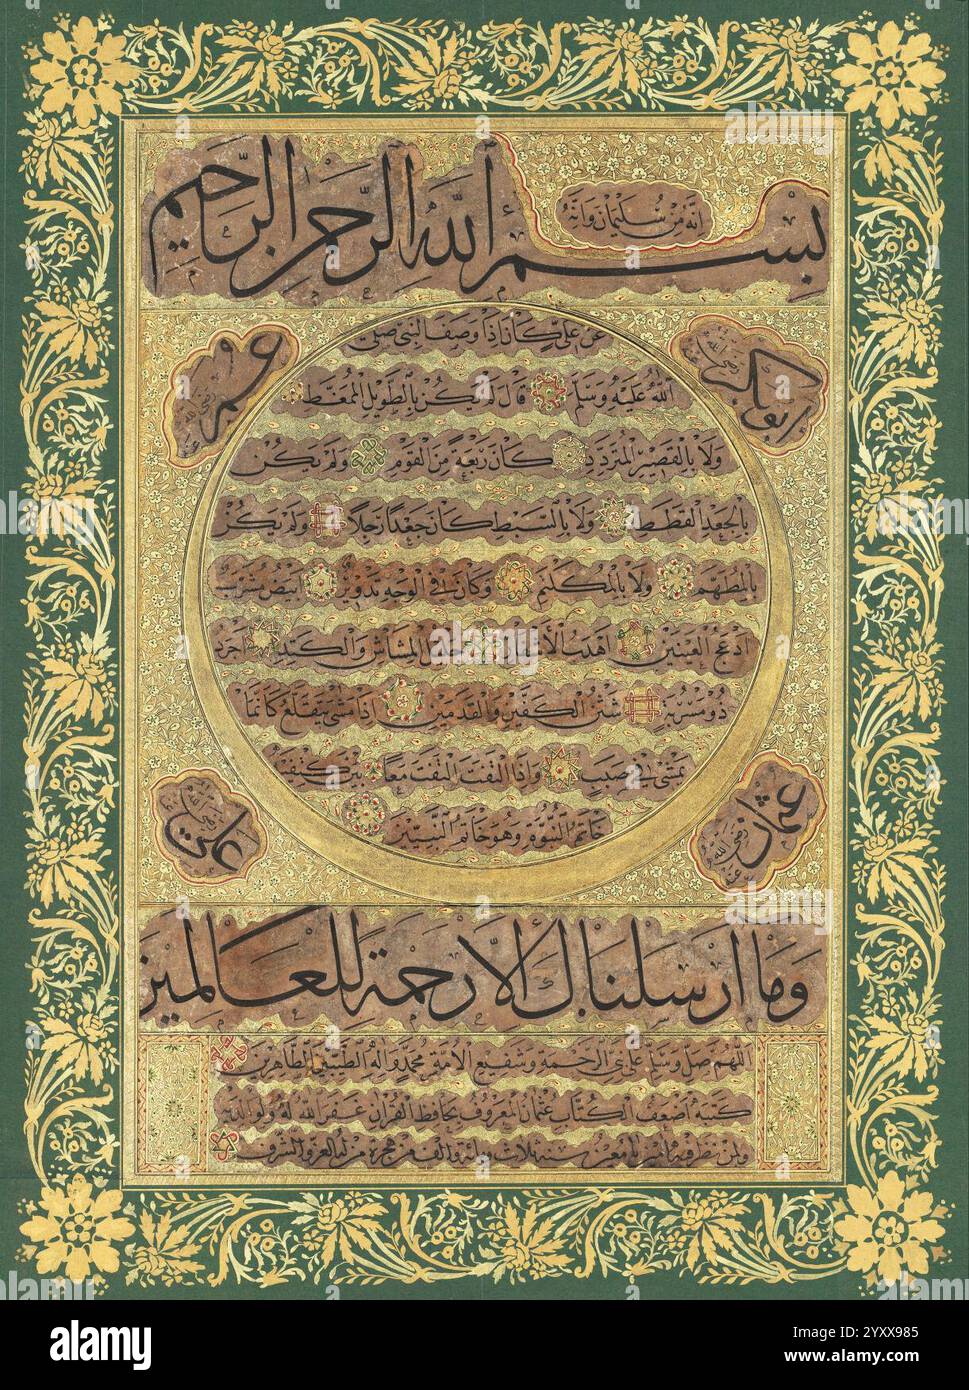 انه من سليمان وانه
بسم الله الرحمن الرحيم
ابو بكر رضي الله عنه
عمر رضي الله عنه
عن علي كان اذا وصف النبي صلى
الله عليه وسلم قال لم يكن بالطويل الممغط
ولا بالقصير المتردد كان ربعة من القوم ولم يكن
بالجعد القطط ولا بالسبط كان جعدا رجلا ولم يكن
بالمطهم ولا بالمكلثم وكان في الوجه تدوير ابيض مشرب
ادعج العينين اهدب الاشفار جليل المشاش والكتد اجرد
ذو مسربة شثن الكفين والقدمين اذا مشى يتقلع كانما
يمشي في صبب واذا التفت التفت معا بين كتفيه
خاتم النبوة وهو خاتم النبيين
عثمان رضي الله عنه
علي رضي الله عنه
وما ارسلناك الا رحمة للعالمين
اللهم صل وسلم على نبي الرحمة وشفيع الامة محمد واله الطيبين الطاهرين
كتبه اضعف الكتاب عثمان المعروف بحافظ القران غفر الله له ولوالديه
ولمن نظر فيه سنة ثلاث ومائة والف من هجرة من له العز والشرف
alamy
Image ID: 2YXX985
www.alamy.com